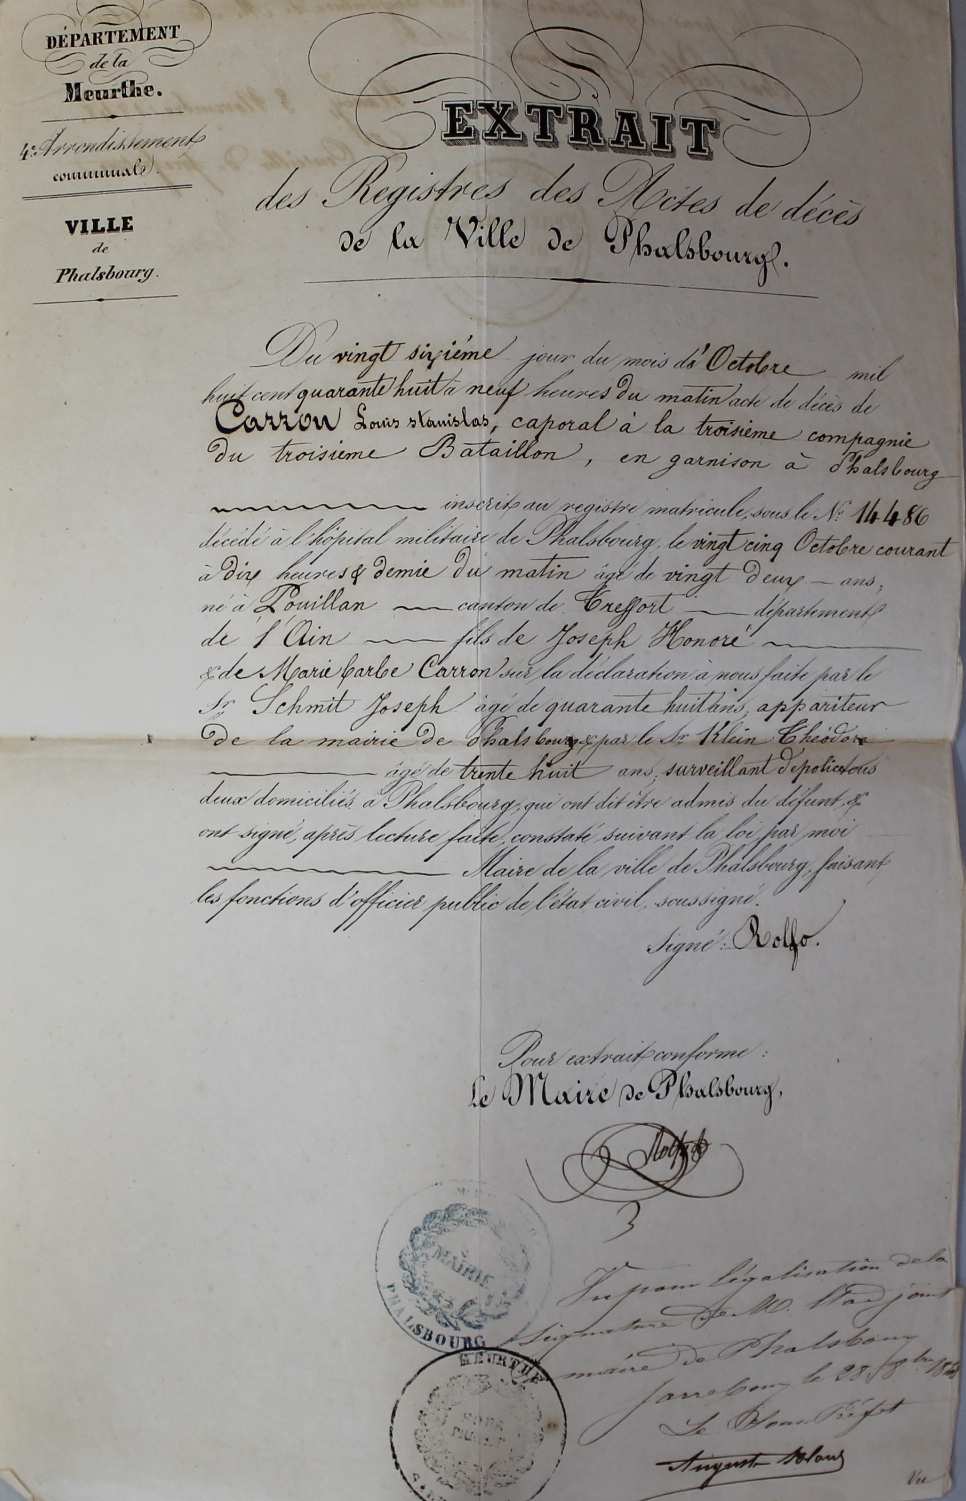 DÉPARTEMENT
de la
Meurthe.
4e Arrondissement
communal.
VILLE
de
Phalsbourg.
EXTRAIT
des Registres des Actes de décès
de la Ville de Phalsbourg.
Du vingt sixième jour du mois d'Octobre mil
huit cent quarante huit à neuf heures du matin acte de décès de
Carron Louis Stanislas, caporal à la troisième compagnie
du troisième Bataillon, en garnison à Phalsbourg
inscrit au registre matricule, sous le No. 14486
décédé à l'hôpital militaire de Phalsbourg, le vingt cinq Octobre courant
à dix heures & demie du matin âgé de vingt deux ans,
né à Pouillan canton de Treffort département
de l'Ain fils de Joseph Honoré
& de Marie barbe Carron sur la déclaration à nous faite par le
Sr Schmit Joseph âgé de quarante huit ans, appariteur
de la mairie de Phalsbourg & par le Sr Klein Théodore
âgé de trente huit ans, surveillant de police tous
deux domiciliés à Phalsbourg, qui ont dit être admis du défunt, &
ont signé, après lecture faite, constaté suivant la loi par moi
Maire de la ville de Phalsbourg, faisant
les fonctions d'officier public de l'état civil, soussigné.
Signé: Rolfo.
Pour extrait conforme:
Le Maire de Phalsbourg,
Rolfo
MAIRIE
PHALSBOURG
Vu pour légalisation de la
signature de M. l'adjoint
maire de Phalsbourg
Sarrebourg le 28 8bre 1848
Le Sous Préfet
MEURTHE
SOUS
Vu